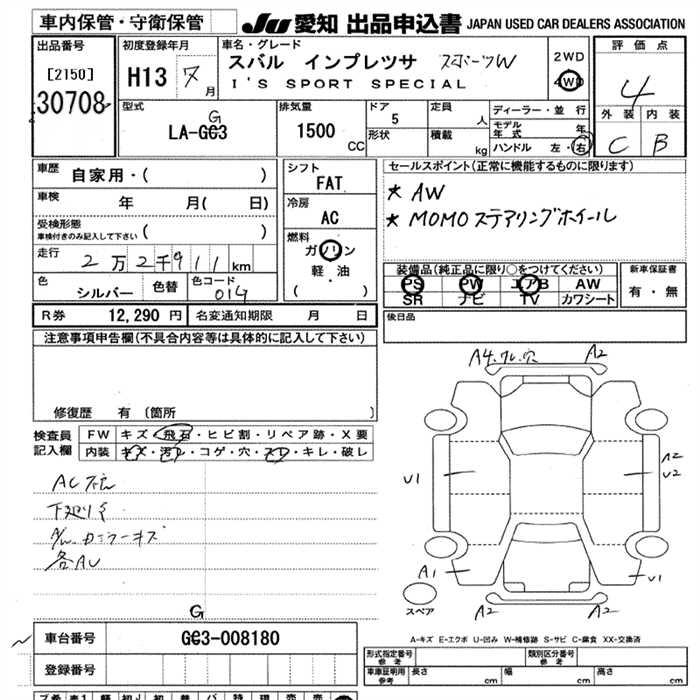 車内保管・守衛保管
JU 愛知 出品申込書 JAPAN USED CAR DEALERS ASSOCIATION
出品番号
[2150]
30708
初度登録年月
H13 7 月
車名・グレード
スバル インプレツサ スポーツW
I'S SPORT SPECIAL
2WD
4WD
評価点
4
外装 内装
C B
型式
G
LA-GC3
排気量
1500 CC
ドア
5
形状
定員
人
積載
kg
ディーラー・並行
モデル年式 年
ハンドル 左・右
車歴
自家用・( )
車検
年 月( 日)
受検形態
車検付きのみ記入して下さい ( )
走行
2万2千911km
色
シルバー
色替
色コード
014
シフト
FAT
冷房
AC
燃料
ガソリン
軽・油
( )
セールスポイント(正常に機能するものに限ります)
★ AW
★ MOMOステアリングホイール
装備品(純正品に限り○をつけてください)
PS PW エアB AW
SR ナビ TV カワシート
新車保証書
有・無
R券 12,290 円
名変通知期限 月 日
後日品
注意事項申告欄(不具合内容等は具体的に記入して下さい)
修復歴 有 〔箇所 〕
検査員
記入欄
FW キズ・飛石・ヒビ割・リペア跡・X要
内装 キズ・汚レ・コゲ・穴・スレ・キレ・破レ
AC不良
下廻りキ
各AU
A4.ワレ.穴
A2
U1
A2
U2
A1
U1
A2
A2
スペア
A-キズ E-エクボ U-凹み W-補修跡 S-サビ C-腐食 XX-交換済
G
車台番号
GC3-008180
登録番号
形式指定番号
参考
類別区分番号
参考
車庫証明用
参考
長さ cm
幅 cm
高さ cm